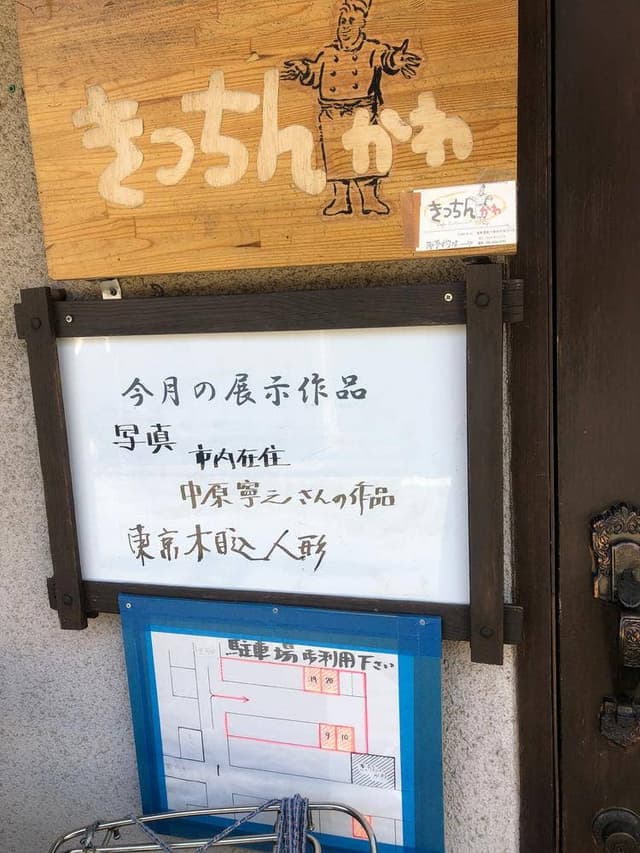 きっちんかわ
きっちんかわ
今月の展示作品
写真
市内在住
中原寧元さんの作品
東京木目込人形
駐車場御利用下さい
19 20
9 10